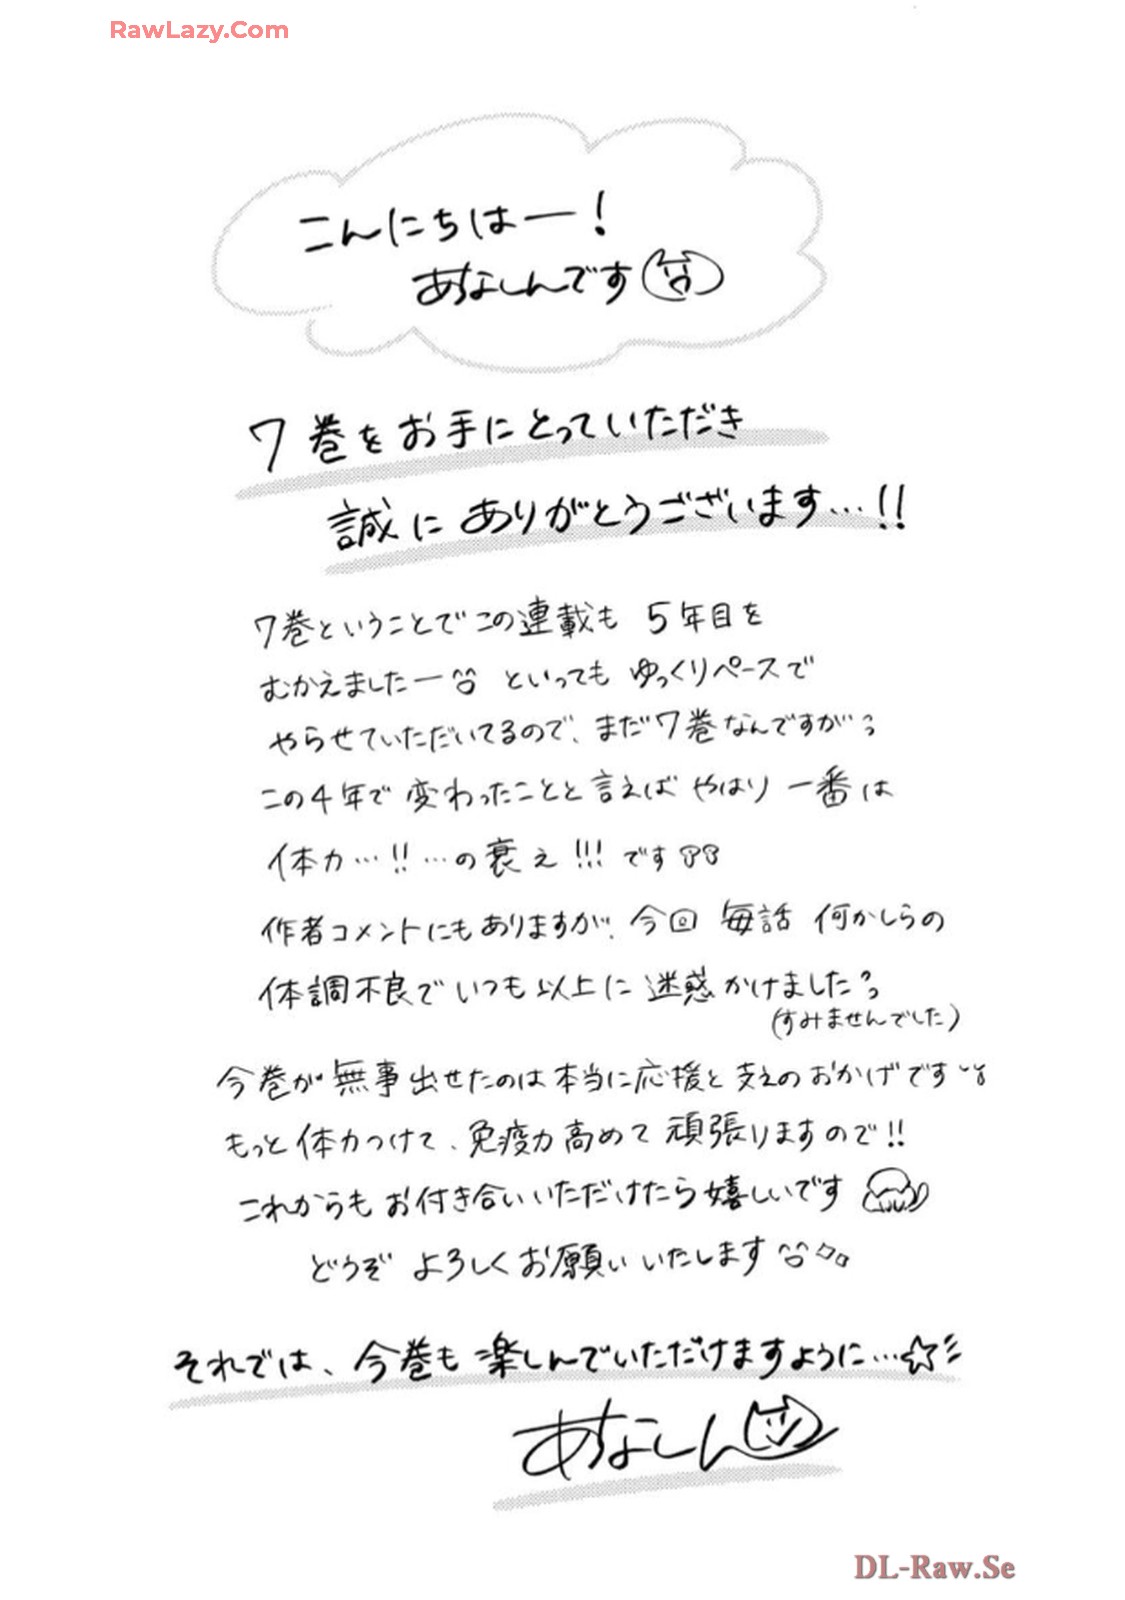 RawLazy.Com
こんにちはー！
あなしんです
7巻をお手にとっていただき
誠にありがとうございます…!!
7巻ということでこの連載も 5年目を
むかえましたー といっても ゆっくりペースで
やらせていただいてるので、まだ7巻なんですが
この4年で 変わったことと言えば やはり 一番は
体力…!!…の衰え!!!です
作者コメントにもありますが、今回 毎話 何かしらの
体調不良でいつも以上に 迷惑かけました
(すみませんでした)
今巻が無事出せたのは本当に応援と支えのおかげです
もっと体力つけて、免疫力高めて 頑張りますので!!
これからもお付き合いいただけたら嬉しいです
どうぞ よろしくお願いいたします
それでは、今巻も楽しんでいただけますように…☆
あなしん
DL-Raw.Se